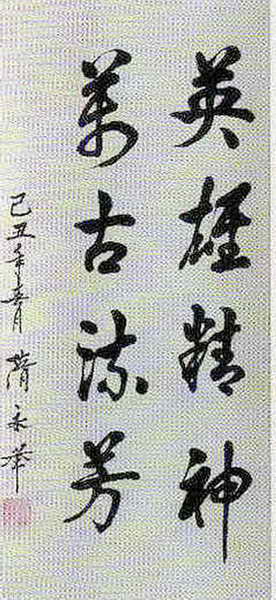 英雄精神
萬古流芳
己丑年春月 隋永華